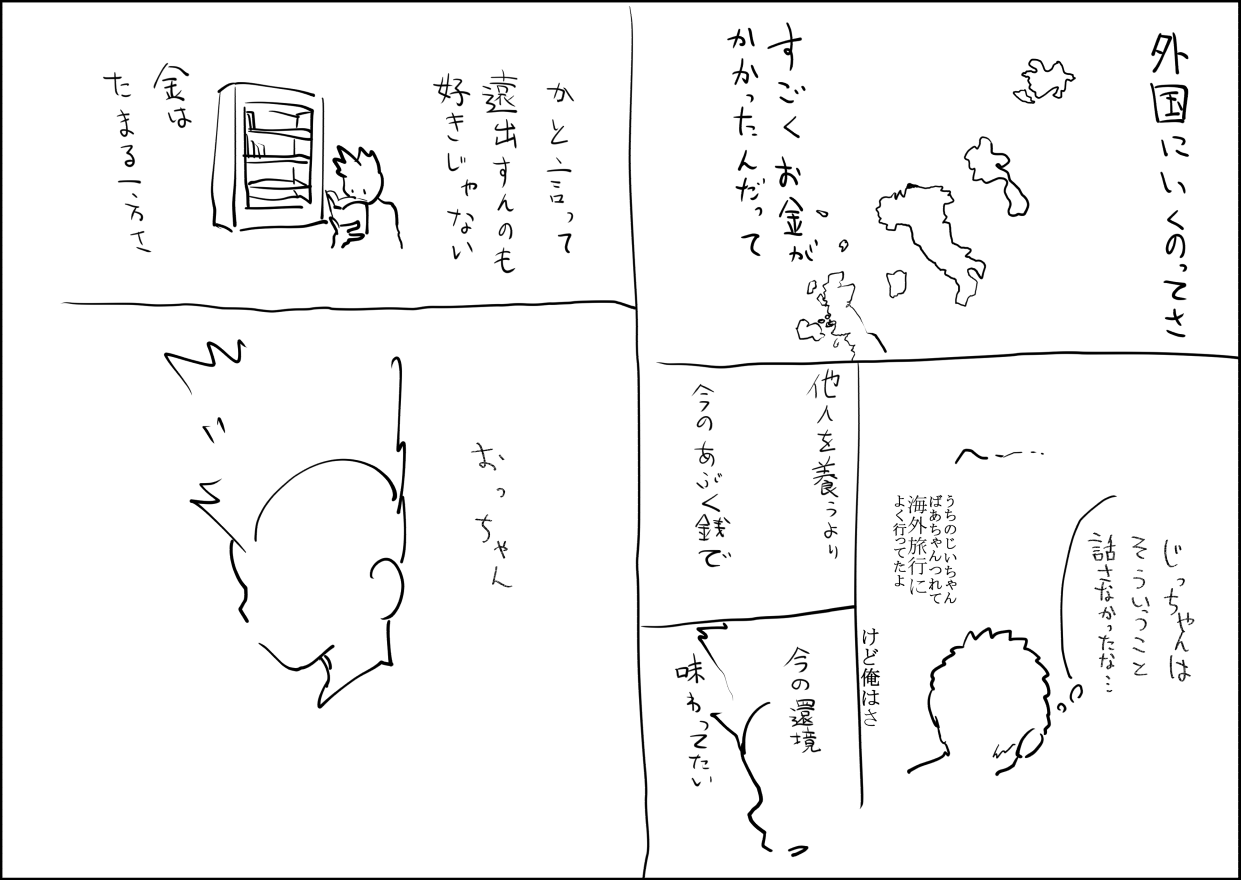 外国にいくのってさ
すごくお金が
かかったんだって
じっちゃんは
そういうこと
話さなかったな…
うちのじいちゃん
ばあちゃんつれて
海外旅行に
よく行ってたよ
けど俺はさ
他人を養うより
今のあぶく銭で
今の環境
味わってたい
かと言って
遠出すんのも
好きじゃない
金は
たまる一方さ
おっちゃん